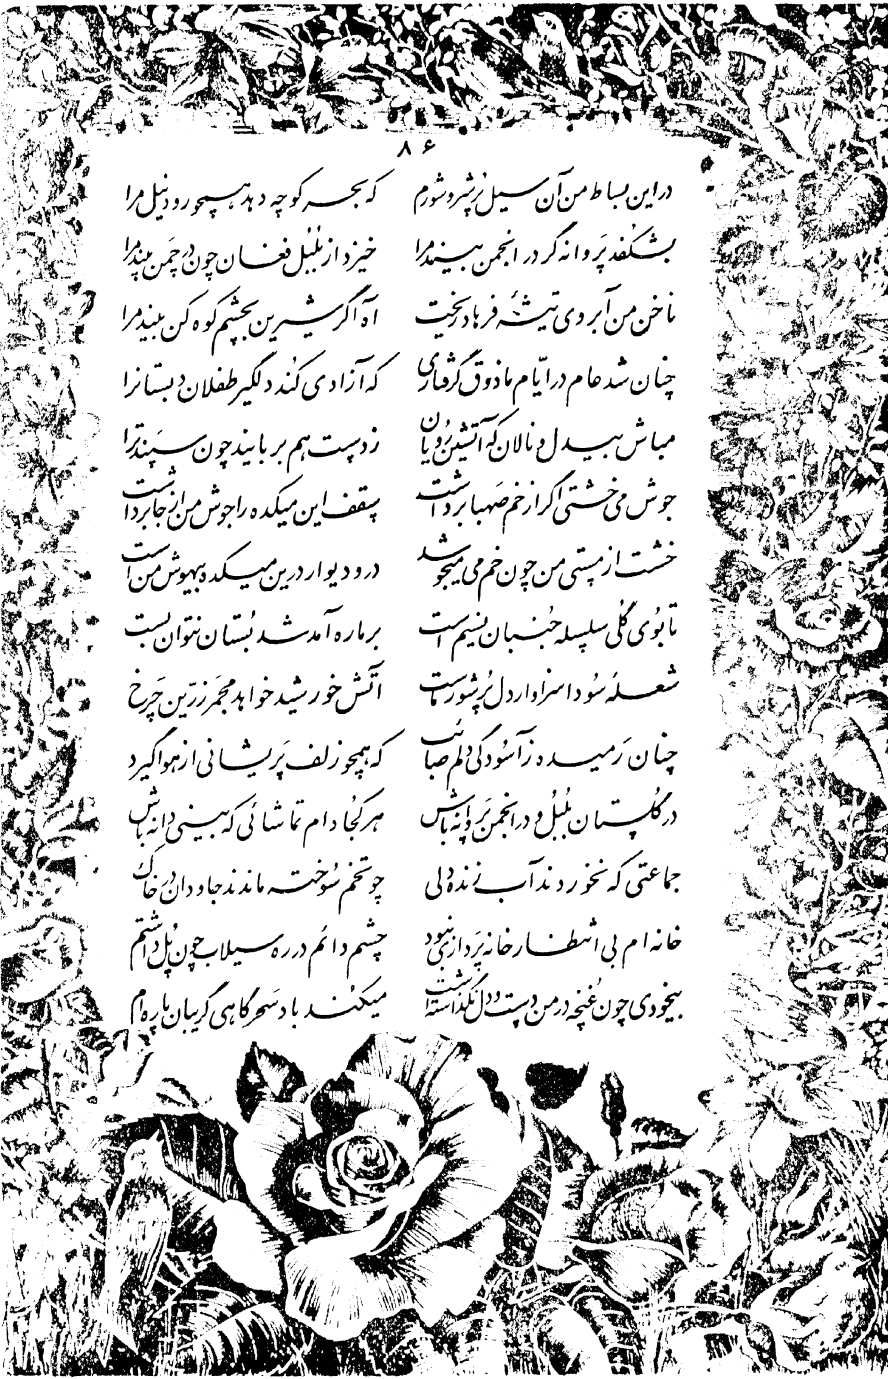 ۸۶
در این بساط من آن سیل پُر شر و شورم که بحر کوچه دهد همچو رود نیل مرا
بشکُفد پَروانه گر در انجمن بیند مرا خیزد از بُلبُل فغان چون در چَمن بیند مرا
ناخن من آبروی تیشهٔ فرهاد ریخت آه اگر شیرین بچشم کوه کن بیند مرا
چنان شد عام در ایّام ما ذوق گرفتاری که آزادی کُند دلگیر طفلان دبستانرا
مباش بیدل و نالان که آتشین رُویان ز دست هم بربایند چون سپَند ترا
جوش می خشتی اگر از خم صَهبا برداشت سقف این میکده را جوش من از جا برداشت
خشت از مستی من چون خم می میجوشد در و دیوار درین میکده بیهوش من است
تا بُوی گُلی سلسله جُنبان نسیم است بر ما ره آمد شد بُستان نتوان بست
شعلهٔ سُودا سزاوار دل پُر شور ماست آتش خورشید خواهد مجمَر زرّین چَرخ
چنان رَمیده ز آسُودگی دلم صائب که همچو زلف پَریشانی از هوا گیرد
در گُلستان بُلبُل و در انجمن پَروانه باش هر کُجا دام تماشائی که بینی دانه باش
جماعتی که نخوردند آب زنده دلی چو تخم سُوخته ماندند جاودان در خاک
خانه ام بی انتظار خانه پَردازی نبود چشم دائم در ره سیلاب چون پُل داشتم
بیخودی چون غُنچه در من دست و دل نگذاشته است میکُند باد سَحر گاهی گریبان پاره ام